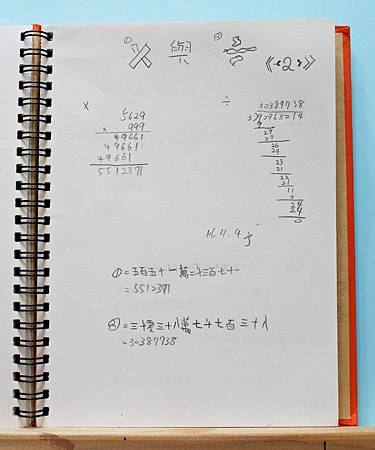 ① × 與 ② ÷ 《-2-》
× ÷
5629
× 999
49661
49661
49661
5512371
30389738
3)92963214
9
29
27
26
24
23
21
22
21
11
9
24
24
0
16.11.4
①=五百五十一萬二千三百七十一
=5512371
②=三千零三十八萬七千七百三十八
=30387738